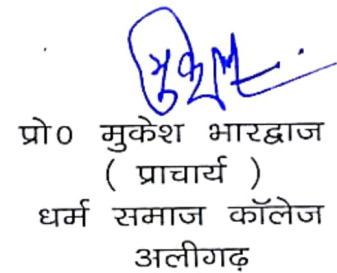 मुकेश
प्रो0 मुकेश भारद्वाज
( प्राचार्य )
धर्म समाज कॉलेज
अलीगढ़